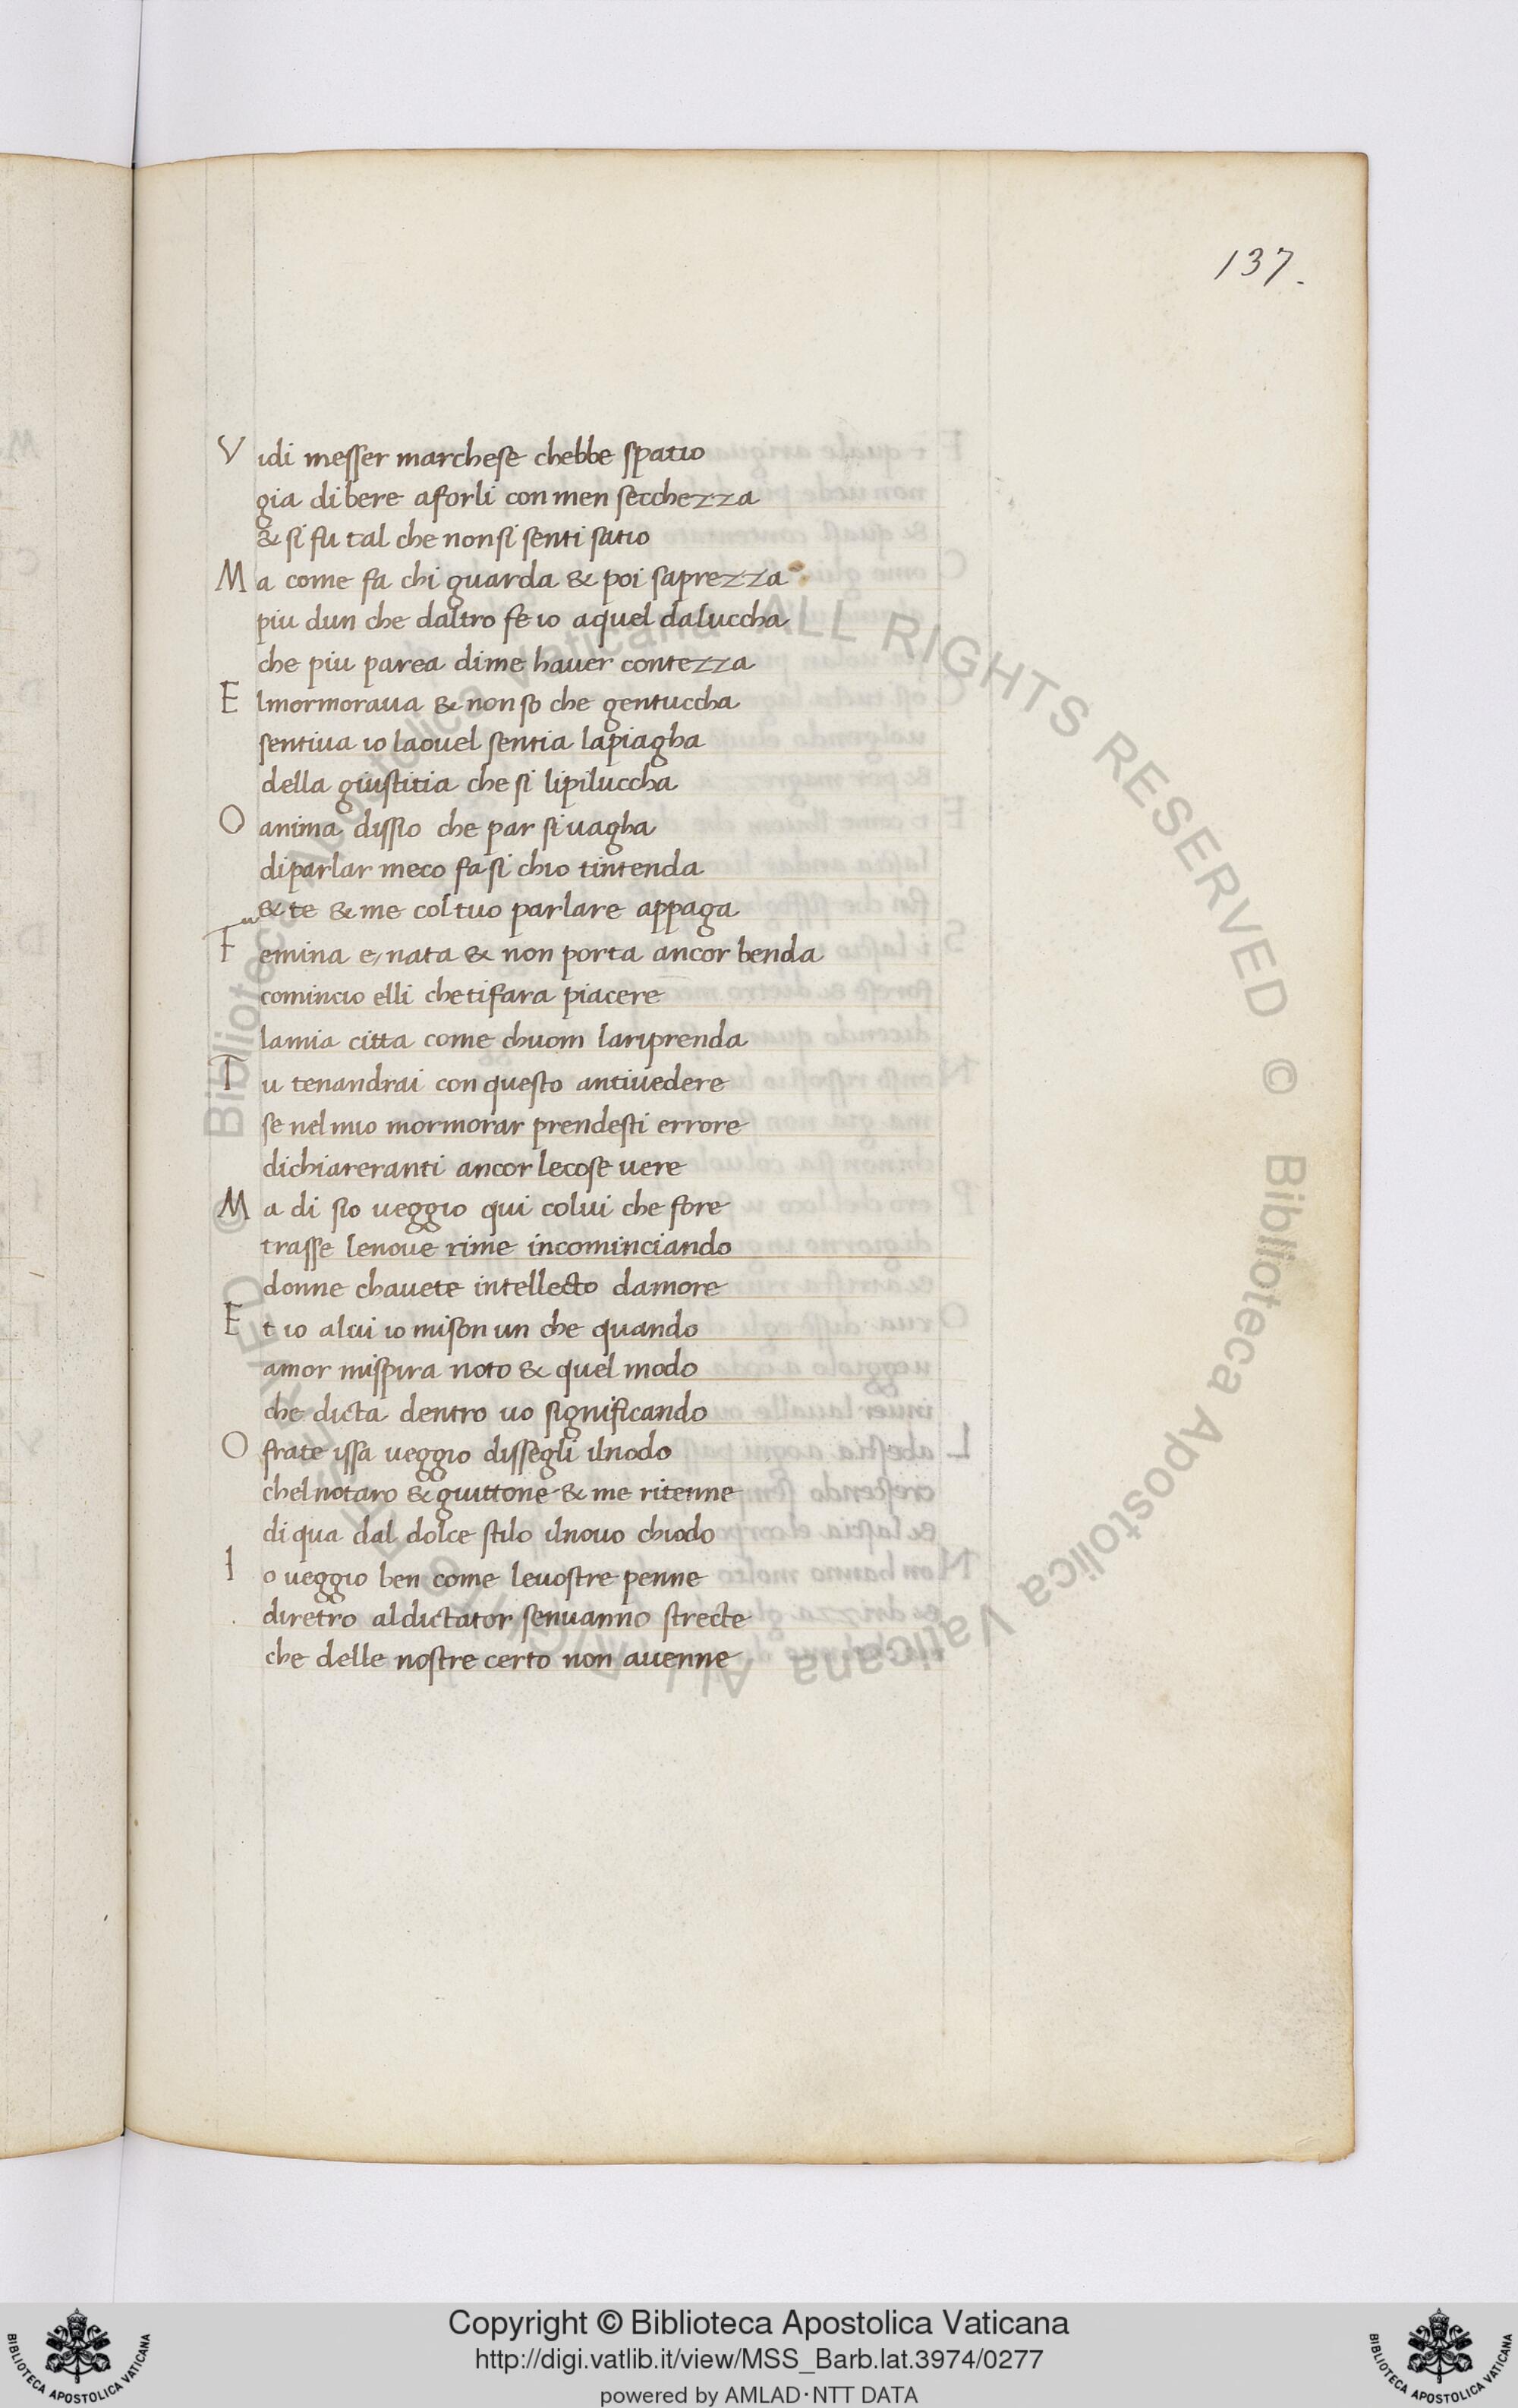 137.
Vidi messer marchese chebbe spatio
gia dibere aforli con men secchezza
& si fu tal che non si senti satio
Ma come fa chi guarda & poi saprezza
piu dun che daltro fe io aquel daluccha
che piu parea dime haver contezza
El mormoraua & non so che gentuccha
sentiua io laouel sentia lapiagha
della giustitia che si lipiluccha
O anima dissio che par si uagha
diparlar meco fa si chio tintenda
& te & me col tuo parlare appaga
Femina e, nata & non porta ancor benda
comincio elli che ti fara piacere
lamia citta come chuom lariprenda
Tu tenandrai con questo antiuedere
se nel mio mormorar prendesti errore
dichiareranti ancor lecose uere
Ma di sio ueggio qui colui che fore
trasse lenoue rime incominciando
donne chauete intellecto damore
Et io alui io mi son un che quando
amor mispira noto & quel modo
che dicta dentro uo significando
O frate issa ueggio dissegli ilnodo
chel notaro & guittone & me ritenne
di qua dal dolce stilo ilnouo chiodo
Io ueggio ben come leuostre penne
diretro al dictator senuanno strecte
che delle nostre certo non auenne
© Biblioteca Apostolica Vaticana ALL RIGHTS RESERVED © Biblioteca Apostolica Vaticana ALL RIGHTS RESERVED
Copyright © Biblioteca Apostolica Vaticana
http://digi.vatlib.it/view/MSS_Barb.lat.3974/0277
powered by AMLAD·NTT DATA
BIBLIOTECA APOSTOLICA VATICANA
BIBLIOTECA APOSTOLICA VATICANA